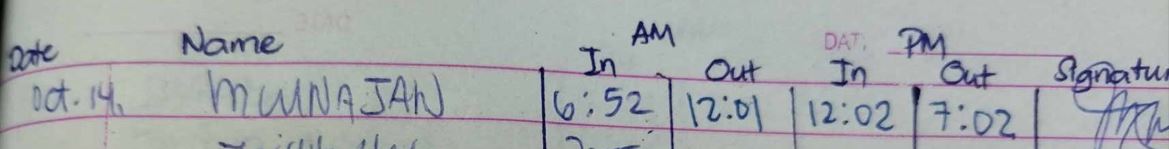 AM DAT. PM
Date Name In Out In Out Signatur
Oct. 14. MUNAJAN 6:52 12:01 12:02 7:02